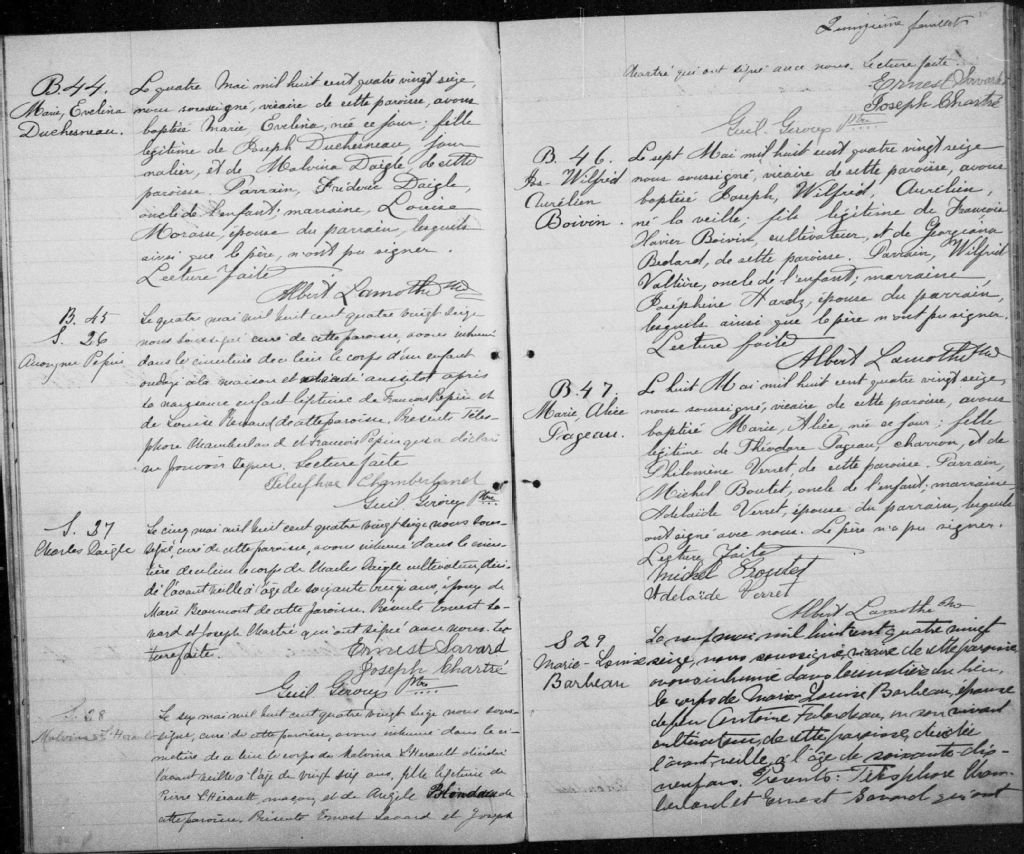 B. 44.
Marie, Evelina
Duchesneau.
Le quatre Mai mil huit cent quatre vingt seize,
nous soussigné, vicaire de cette paroisse, avons
baptisé Marie, Evelina, née ce jour; fille
légitime de Joseph Duchesneau, jour
nalier, et de Malvina Daigle de cette
paroisse. Parrain, Fréderic Daigle,
oncle de l'enfant; marraine, Louise
Morasse, épouse du parrain, lesquels
ainsi que le père, n'ont pu signer.
Lecture faite
Albert Lamothe Ptre
B. 45
S. 26
Anonyme Pepin
Le quatre mai mil huit cent quatre vingt seize
nous soussigné curé de cette paroisse, avons inhumé
dans le cimetière de ce lieu le corps d'un enfant
ondoyé à la maison et décédé aussitot après
sa naissance enfant légitime de François Pepin et
de Louise Renaud de cette paroisse. Présents Téles-
phore Chamberland et François Pepin qui a déclaré
ne pouvoir signer. Lecture faite
Telesphore Chamberland
Guil. Giroux Ptre
S. 27
Charles Daigle
Le cinq mai mil huit cent quatre vingt seize nous sous-
signé, curé de cette paroisse, avons inhumé dans le cime-
tière de ce lieu le corps de Charles Daigle cultivateur décé-
dé l'avant veille à l'âge de soixante ans, époux de
Marie Beaumont de cette paroisse. Présents Ernest Sa-
vard et Joseph Chartré qui ont signé avec nous. Lec-
ture faite.
Ernest Savard
Joseph Chartré
Guil Giroux Ptre
S. 28
Malvina L'Herault
Le six mai mil huit cent quatre vingt seize nous sous-
signé, curé de cette paroisse, avons inhumé dans le ci-
metière de ce lieu le corps de Malvina L'Herault décédée
l'avant veille à l'âge de vingt six ans, fille légitime de
Pierre L'Hérault, maçon, et de Angèle Blondeau de
cette paroisse. Présents Ernest Savard et Joseph
Quinzième feuillet
Chartré qui ont signé avec nous. Lecture faite.
Ernest Savard
Joseph Chartré
Guil. Giroux Ptre
B. 46.
Jos- Wilfrid
Aurélien
Boivin.
Le sept Mai mil huit cent quatre vingt seize
nous soussigné, vicaire de cette paroisse, avons
baptisé Joseph, Wilfrid, Aurélien,
né la veille; fils légitime de François
Xavier Boivin, cultivateur, et de Georgiana
Bedard, de cette paroisse. Parrain, Wilfrid
Vallière, oncle de l'enfant; marraine
Joséphine Hardy, épouse du parrain,
lesquels ainsi que le père n'ont pu signer.
Lecture faite
Albert Lamothe Ptre
B. 47.
Marie, Alice
Pageau.
Le huit Mai mil huit cent quatre vingt seize,
nous soussigné, vicaire de cette paroisse, avons
baptisé Marie, Alice, née ce jour; fille
légitime de Théodore Pageau, charron, et de
Philomène Verret de cette paroisse. Parrain,
Michel Boutet, oncle de l'enfant; marraine-
Adelaïde Verret, épouse du parrain, lesquels
ont signé avec nous. Le père n'a pu signer.
Lecture faite
Michel Boutet
Adelaïde Verret
Albert Lamothe Ptre
S 29
Marie-Louise
Barbeau
Le neuf mai, mil huit cent quatre vingt
seize, nous soussigné, vicaire de cette paroisse,
avons inhumé dans le cimetière du lieu,
le corps de Marie Louise Barbeau, épouse
de feu Antoine Falardeau, en son vivant
cultivateur, de cette paroisse, décédée
l'avant veille, à l'âge de soixante-dix-
neuf ans. Présents: Télesphore Cham-
berland et Ernest Savard qui ont